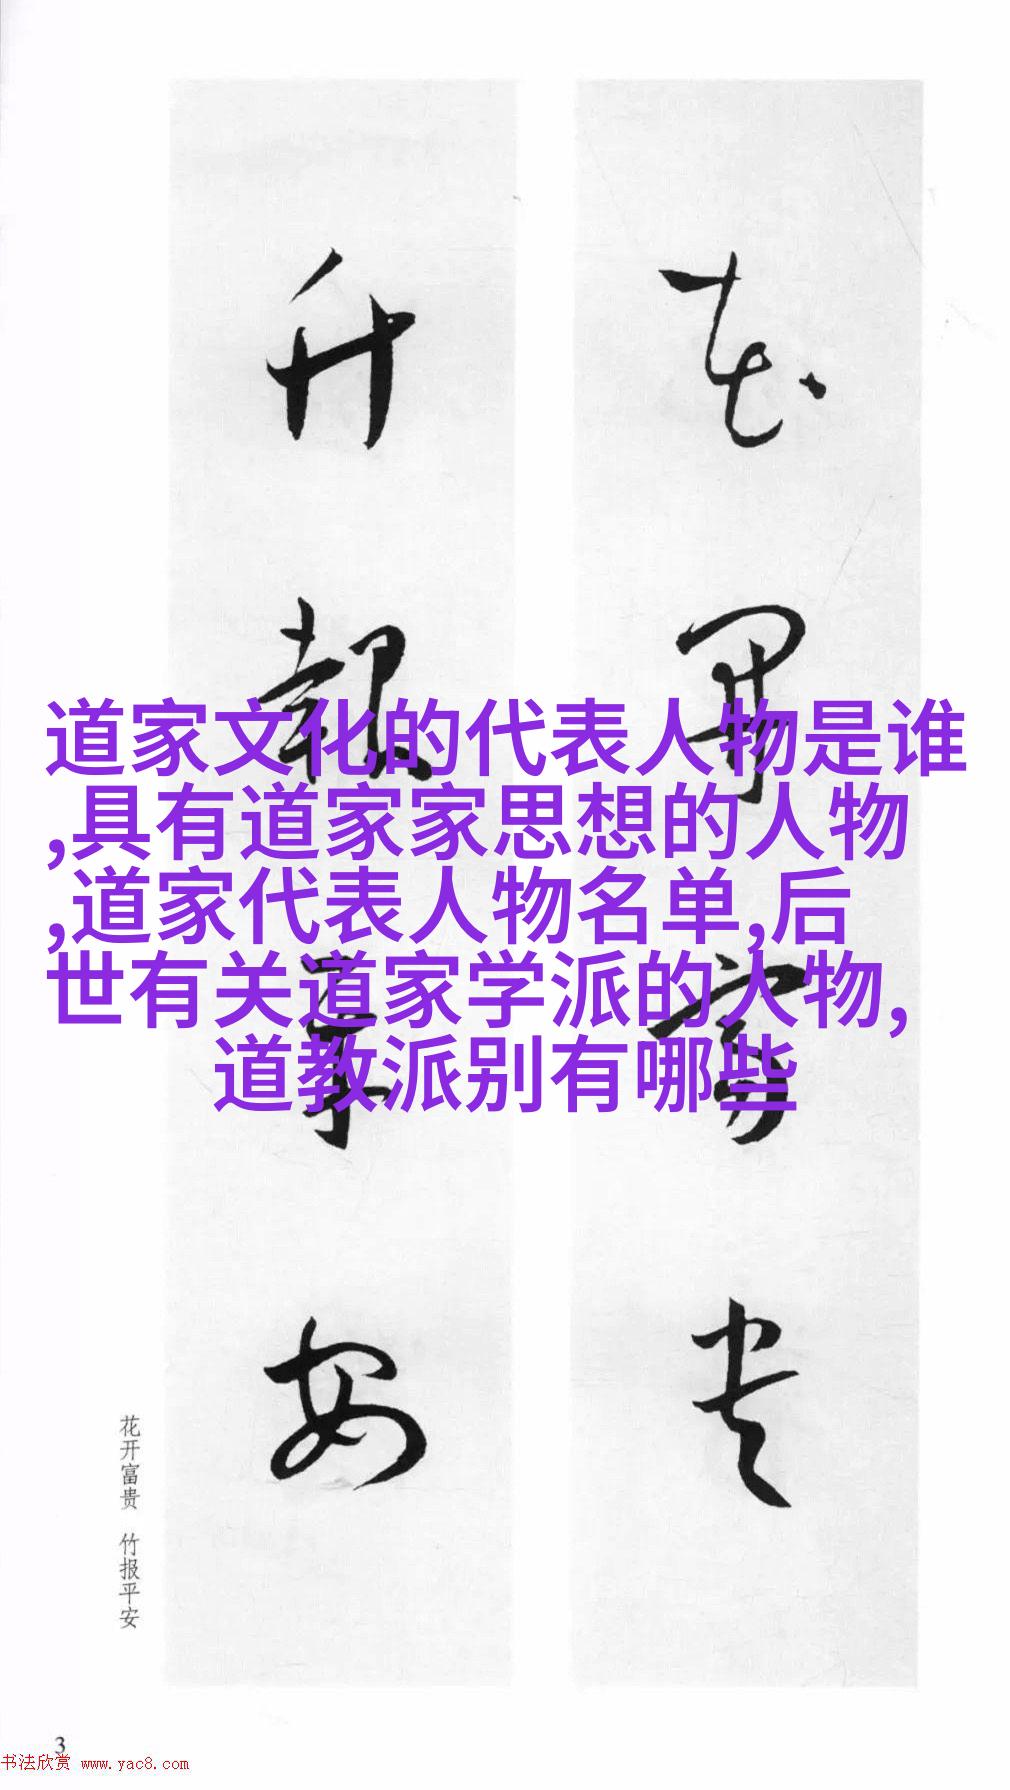 道家文化的代表人物是谁
,具有道家家思想的人物
,道家代表人物名单,后
世有关道家学派的人物,
道教派别有哪些
花开富贵
竹报平安
花开富贵 竹报平安
3
书法欣赏 www.yac8.com